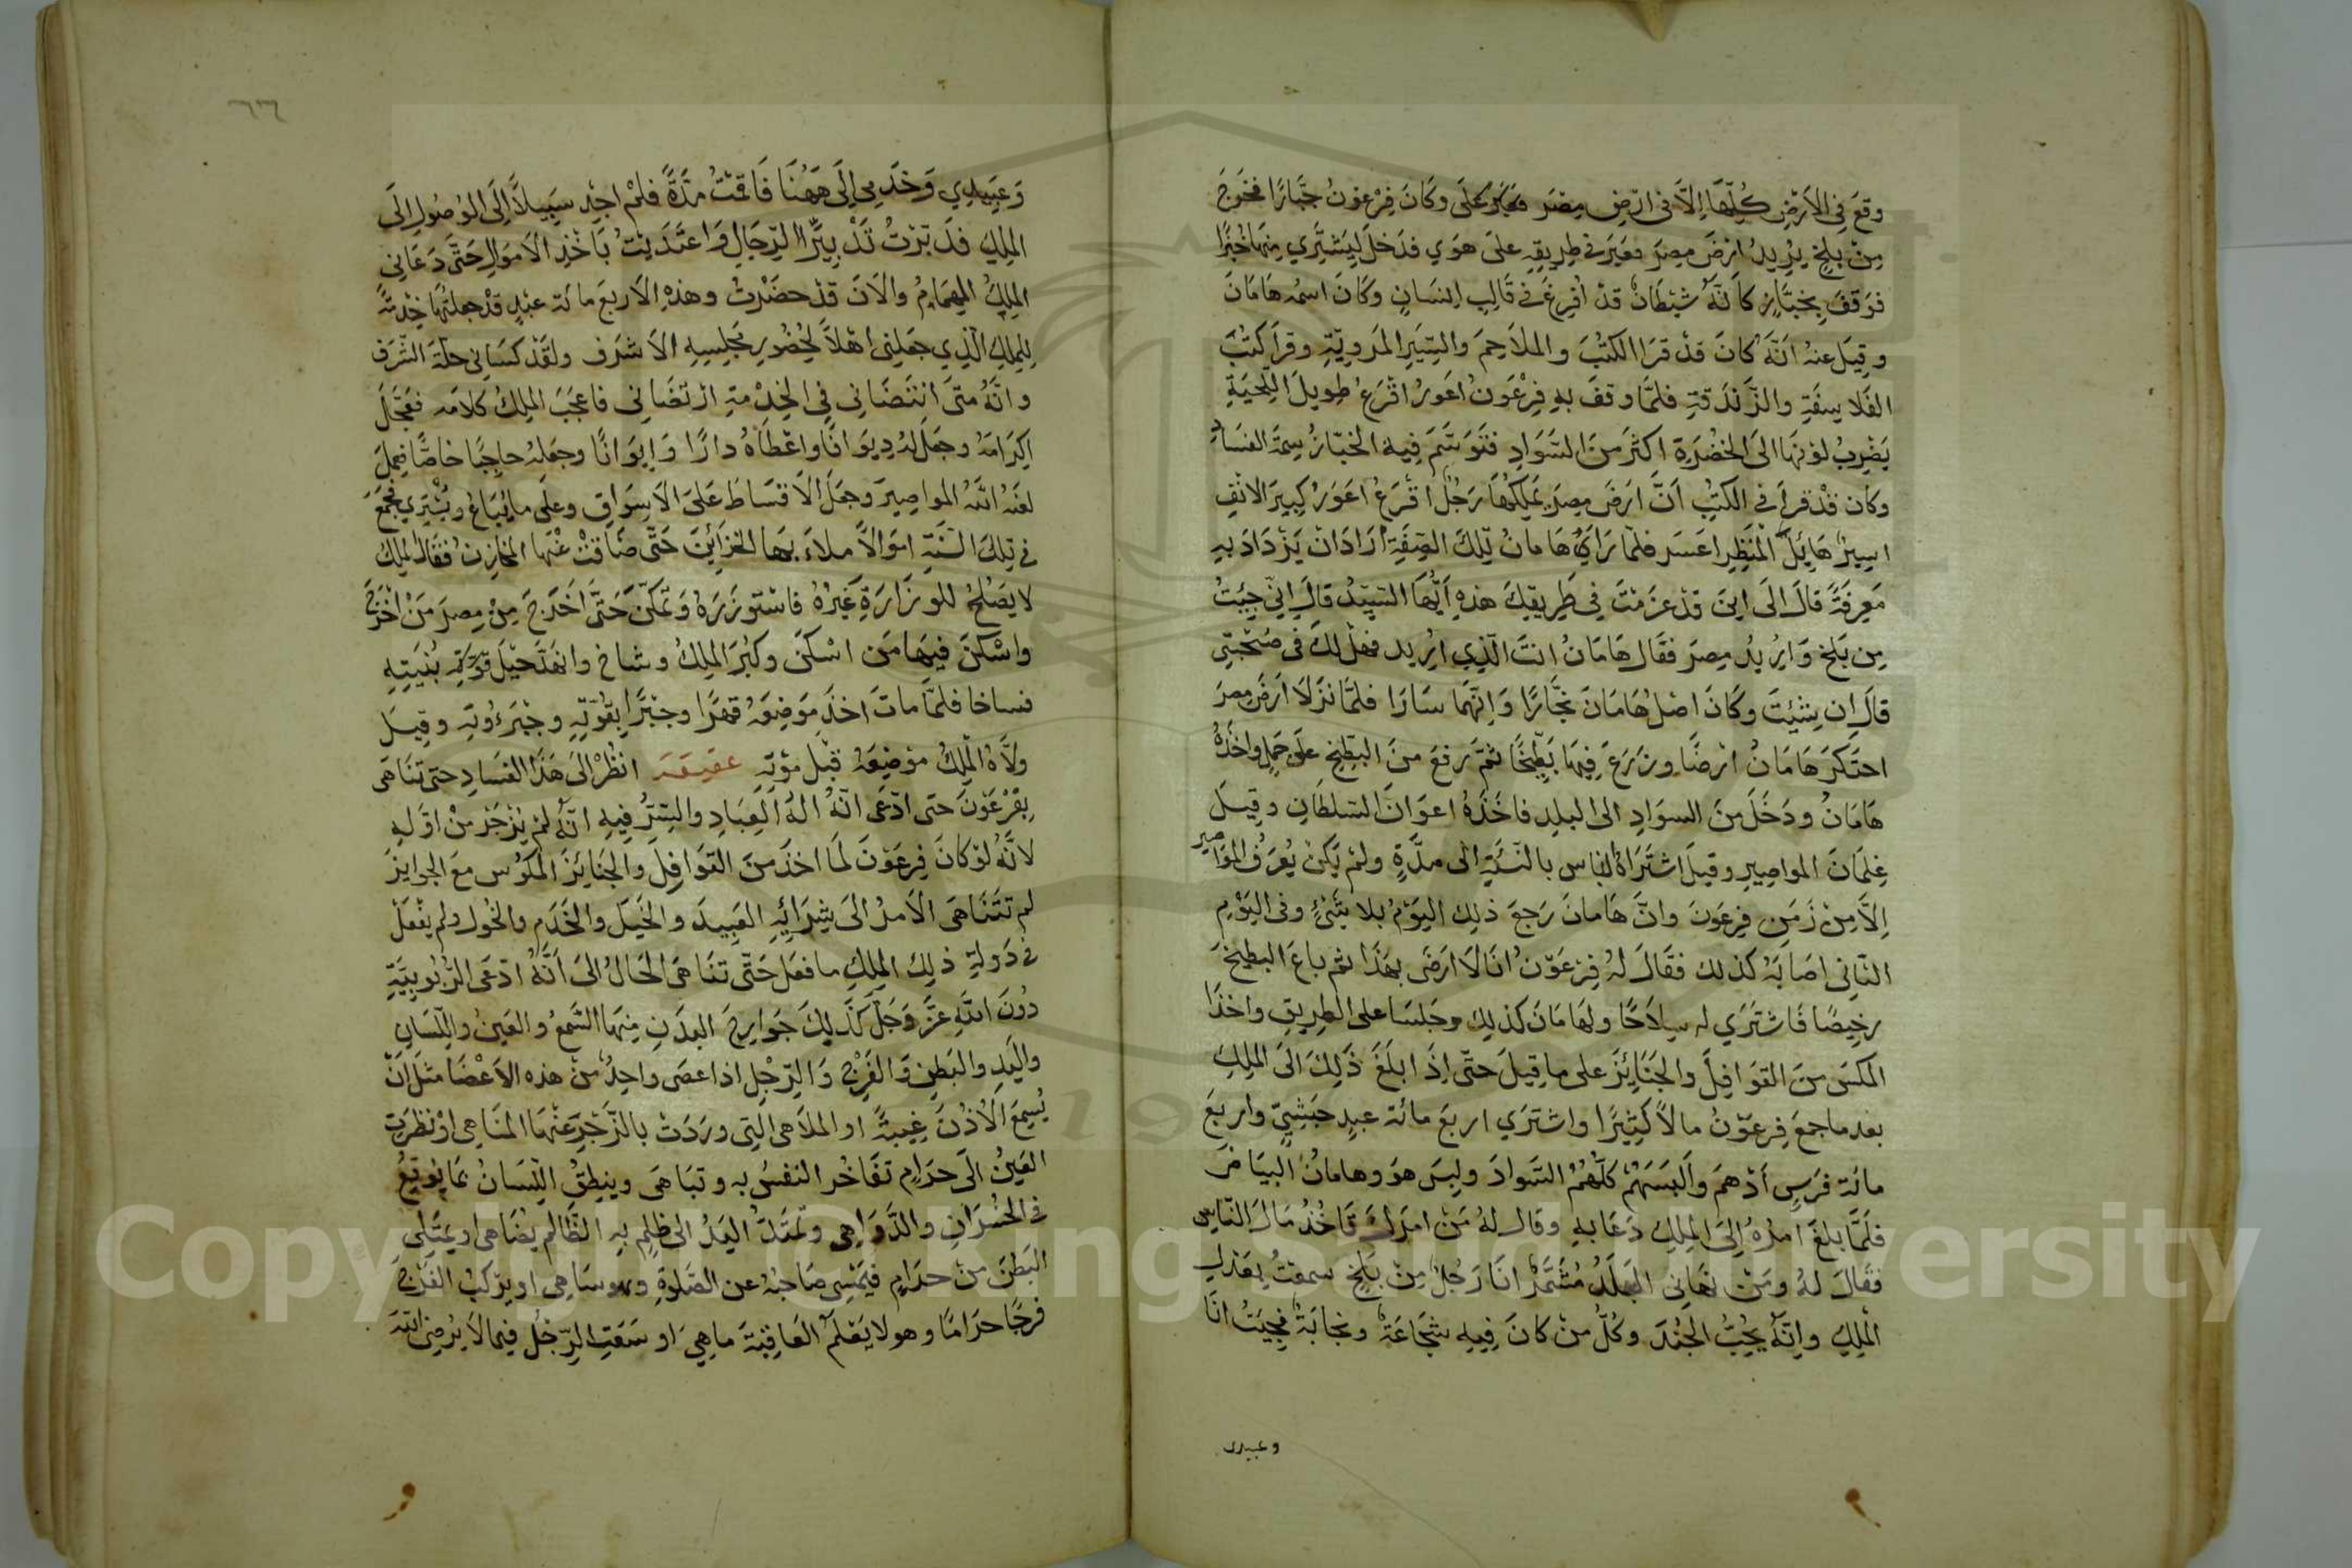 وقع في الارض كلها الا في ارض مصر وكان فرعون جبارا فخرج
من بلخ يريد ارض مصر فعبر في طريقه على هوي فدخل ليشتري منها خبزا
فوقف بخباز كانه شيطان قد افرغ في قالب انسان وكان اسمه هامان
وقيل عنه انه كان قد قرا الكتب والملاحم والسير المروية وقرا كتب
الفلاسفة والزندقة فلما وقف به فرعون اعور اقرع طويل اللحية
يضرب لونها الى الخضرة اكثر من السواد فتوسم فيه الخباز سمة الفساد
وكان قد قرا في الكتب ان ارض مصر يملكها رجل اقرع اعور كبير الانف
اسير هايل المنظر اعسر فلما راي هامان تلك الصفة اراد ان يزداد به
معرفة قال الى اين قد عزمت في طريقك هذه ايها السيد قال اني جيت
من بلخ واريد مصر فقال هامان انت الذي اريد فهل لك في صحبتي
قال ان شيت وكان اصل هامان نجارا وانهما سارا فلما نزلا ارض مصر
احتكر هامان ارضا وزرع فيها بطيخا ثم رفع من البطيخ على حمل واخذه
هامان ودخل من السواد الى البلد فاخذه اعوان السلطان وقيل
غلمان المواصير وقيل اشتراه الناس بالنسئة الى مدة ولم يكن يعرف المواصير
الا من زمن فرعون وان هامان رجع ذلك اليوم بلا شئ وفي اليوم
الثاني اصابه كذلك فقال له فرعون انا لا ارضى بهذا ثم باع البطيخ
رخيصا فاشتري له سلاحا ولهامان كذلك وجلسا على الطريق واخذا
المكس من القوافل والجنائز على ما قيل حتى اذا بلغ ذلك الى الملك
بعد ما جمع فرعون مالا كثيرا واشتري اربع مائة عبد حبشي واربع
مائة فرس ادهم والبسهم كلهم السواد ولبس هو وهامان البياض
فلما بلغ امره الى الملك دعا به وقال له من امرك تاخذ مال الناس
فقال له ومن نهاني انا رجل من بلخ سمعت بعدل
الملك وانه يحب الجند وكل من كان فيه شجاعة ونجابة فجيت انا
وعبيدي
٦٦
وعبيدي وخدمي الى ههنا فاقمت مدة فلم اجد سبيلا الى الوصول الى
الملك فدبرت تدبير الرجال واعتديت باخذ الاموال حتى دعاني
الملك الهمام والان قد حضرت وهذه الاربع مائة عبد قد جعلتها خدمة
للملك الذي جعلني اهلا لحضور مجلسه الاشرف ولقد كساني حلة الشرف
وانه متى انتضاني في الخدمة ارتضاني فاعجب الملك كلامه فعجل
اكرامه وجعل له ديوانا واعطاه دارا وايوانا وجعله حاجبا خاصا فعمل
لعنه الله المواصير وجعل الاقساط على الاسواق وعلى ما يباع ويشتري فجمع
في تلك السنة اموالا ملاء بها الخزائن حتى ضاقت عنها المخازن فقال الملك
لا يصلح للوزارة غيره فاستوزره وتمكن حتى اخرج من مصر من اخرج
واسكن فيها من اسكن وكبر الملك وشاخ وانهد حيل قوته بنيته
فساخا فلما مات اخذ موضعه قهرا وجبرا بقوته وجبروته وقيل
ولاه الملك موضعه قبل موته عقيقه انظر الى هذا الفساد حتى تناهى
بفرعون حتى ادعى انه اله العباد والستر فيه انه لم يزجر من اوله
لانه لو كان فرعون لما اخذ من القوافل والجنائز المكوس مع الجوايز
لم تتناهى الامر الى شرائه العبيد والخيل والخدم والخول ولم يفعل
في دولة ذلك الملك ما فعل حتى تناهى الحال الى انه ادعى الربوبية
دون الله عز وجل كذلك جوارح البدن منها السمع والعين واللسان
واليد والبطن والفرج والرجل اذا عصى واحد من هذه الاعضا مثل ان
يسمع الاذن غيبة او الملاهي التي وردت بالزجر عنها المناهي او نظرت
العين الى حرام تفاخر النفس به وتباهى وينطق اللسان بما يوقع
في الخسران والدواهي وتمتد اليد الى ظلم به الظالم يضاهي او يمتلي
البطن من حرام فيمسي صاحبه عن الصلوة وهو ساهي او يركب الفرج
فرجا حراما وهو لا يعلم العاقبة ما هي او سعت الرجل فيما لا يرضي الله
Copyright © King Saud University